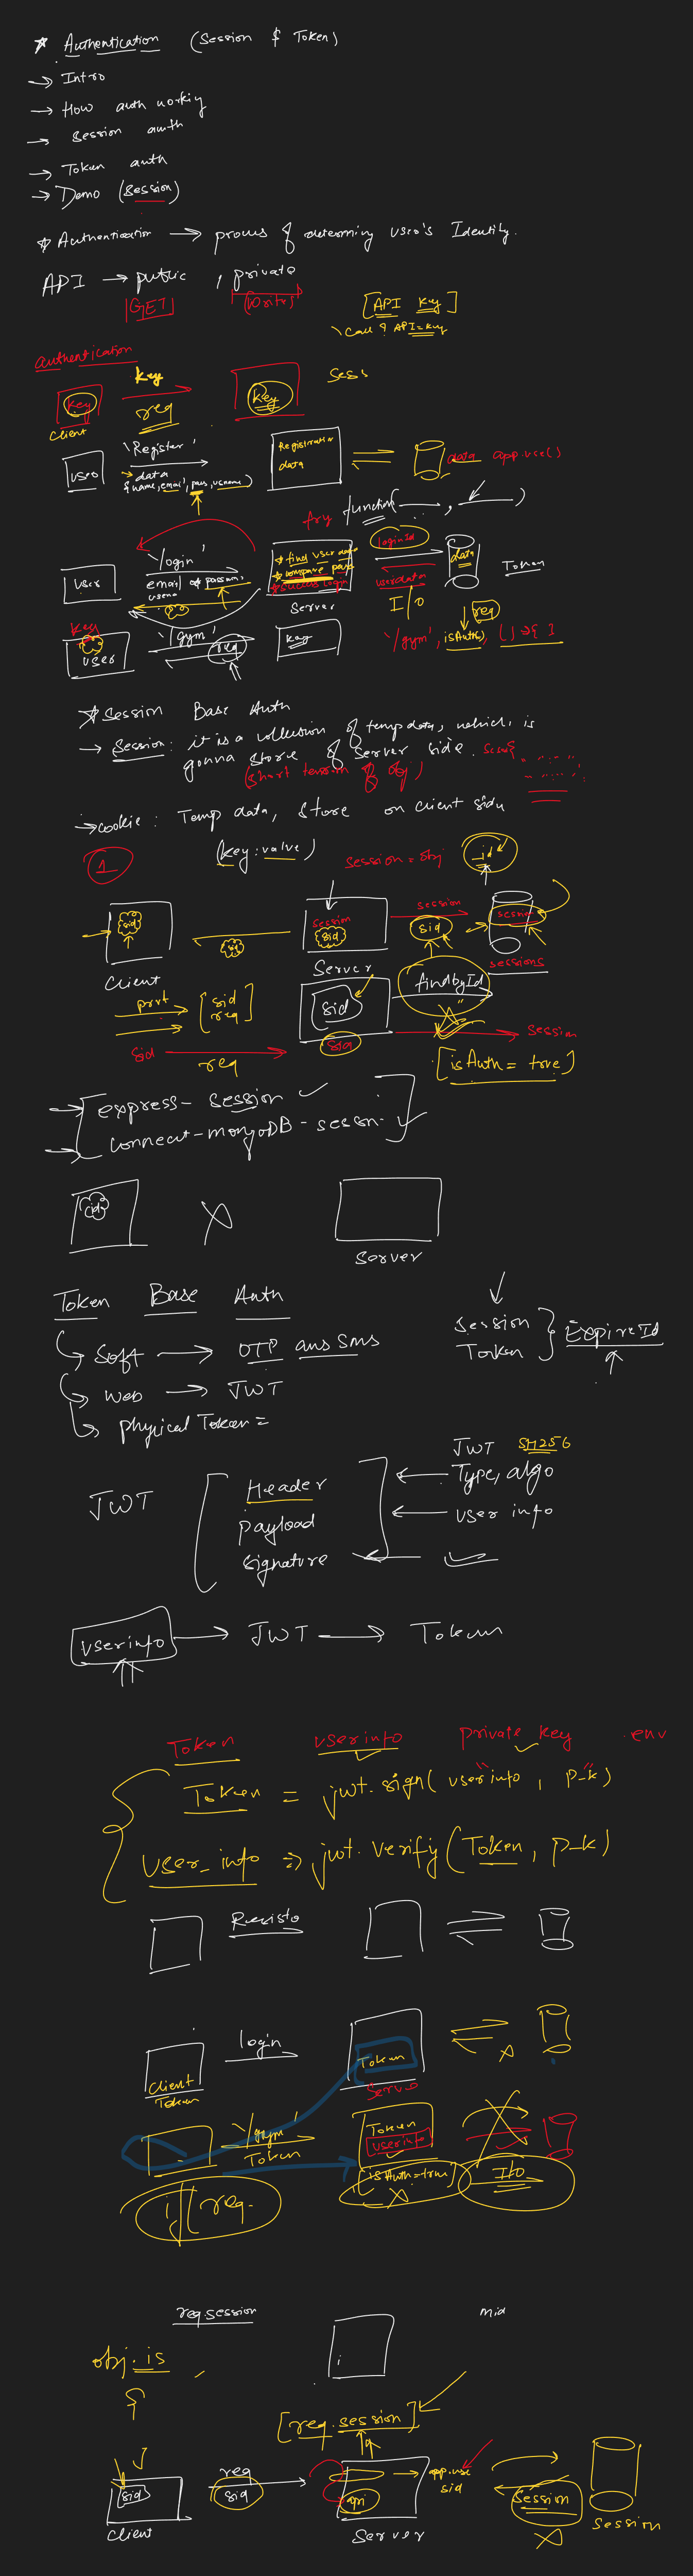 * Authentication (Session & Token)
→ Intro
→ How auth workiy
→ Session auth
→ Token auth
→ Demo (Session)
* Authentication → proms of determing user's Identity.
API → public , private
[GET] (Write)
[API key]
authentication
key key key
req
client
'Register'
user → data
{name, email, pass, usname}
Registration data
data app.use()
try function
'/login'
user email & password
* find user data
* compare pass
* success login
Server
loginId
userdata
I/O
data
Token
key
user '/gym' req
key
req
'/gym', isAuth, () => { }
* Session Base Auth
→ Session: it is a collusion of temp data, which is
gonna store of server side.
→ cookie: Temp data, Store on client side
(key: value)
1
session = obj _id
sid
client
sid
session
sid
Server
session
sid
session
sessions
[sid
req]
sid
findbyId
sid → req
sid
session
[isAuth = true]
express-session
connect-mongoDB-session
sid X
Server
Token Base Auth
Soft → OTP ans SMS
Web → JWT
physical Token =
Session
Token } Expire Id
JWT
Header
payload
signature
JWT SH256
Type, algo
user info
userinfo → JWT → Token
Token userinfo private key .env
Token = jwt.sign( userinfo , p-k)
User_info => jwt.verify(Token, p-k)
login
Client
Token
Token
'/gym'
Token
Token
userinfo
[isAuth=true]
I/O
if( req.
req.session
obj.is
[req.session]
sid
client
req
sid
api
Server
app.use
sid
session
session